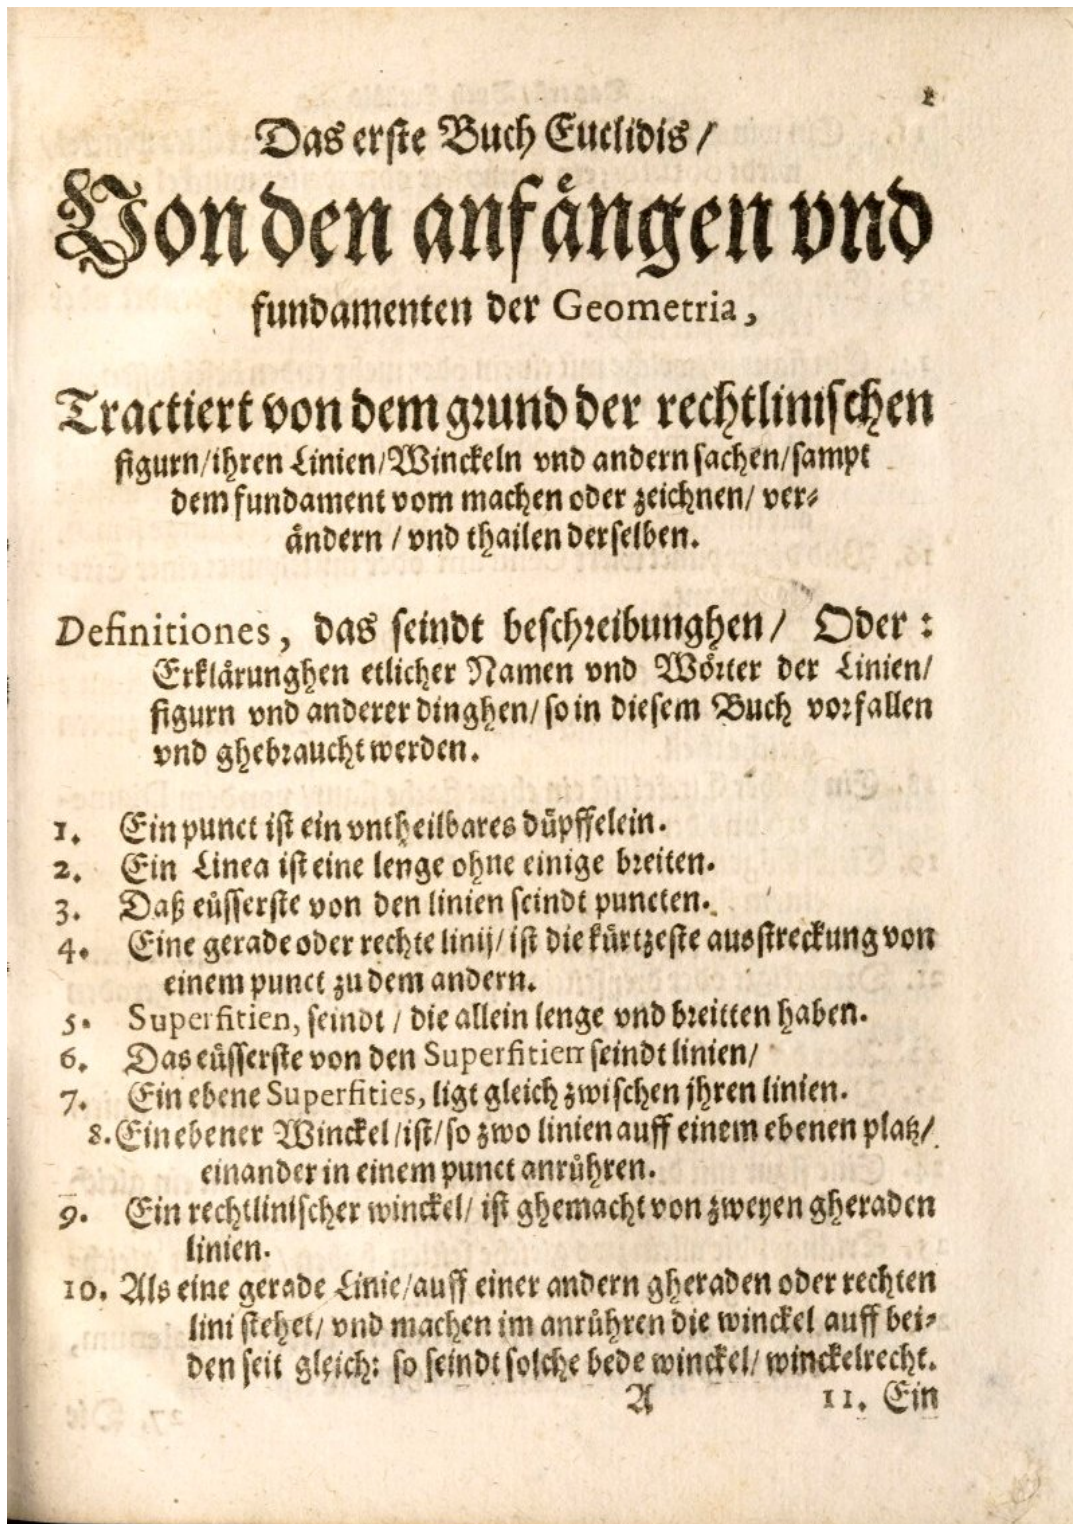 1
Das erste Buch Euclidis/
Von den anfången vnd
fundamenten der Geometria,
Tractiert von dem grund der rechtlinischen
figurn/ihren Linien/Winckeln vnd andern sachen/sampt
dem fundament vom machen oder zeichnen/ ver-
åndern / vnd thailen derselben.
Definitiones, das seindt beschreibunghen/ Oder:
Erklårunghen etlicher Namen vnd Wörter der Linien/
figurn vnd anderer dinghen/ so in diesem Buch vorfallen
vnd ghebraucht werden.
1. Ein punct ist ein vntheilbares düpffelein.
2. Ein Linea ist eine lenge ohne einige breiten.
3. Daß eüsserste von den linien seindt puncten.
4. Eine gerade oder rechte linij/ ist die kürtzeste ausstreckung von
einem punct zu dem andern.
5. Superfitien, seindt / die allein lenge vnd breitten haben.
6. Das eüsserste von den Superfitien seindt linien/
7. Ein ebene Superfities, ligt gleich zwischen jhren linien.
8. Ein ebener Winckel/ist/so zwo linien auff einem ebenen platz/
einander in einem punct anrůhren.
9. Ein rechtlinischer winckel/ ist ghemacht von zweyen gheraden
linien.
10. Als eine gerade Linie/auff einer andern gheraden oder rechten
lini stehet/ vnd machen im anrůhren die winckel auff bei-
den seit gleich: so seindt solche bede winckel/ winckelrecht.
A 11. Ein